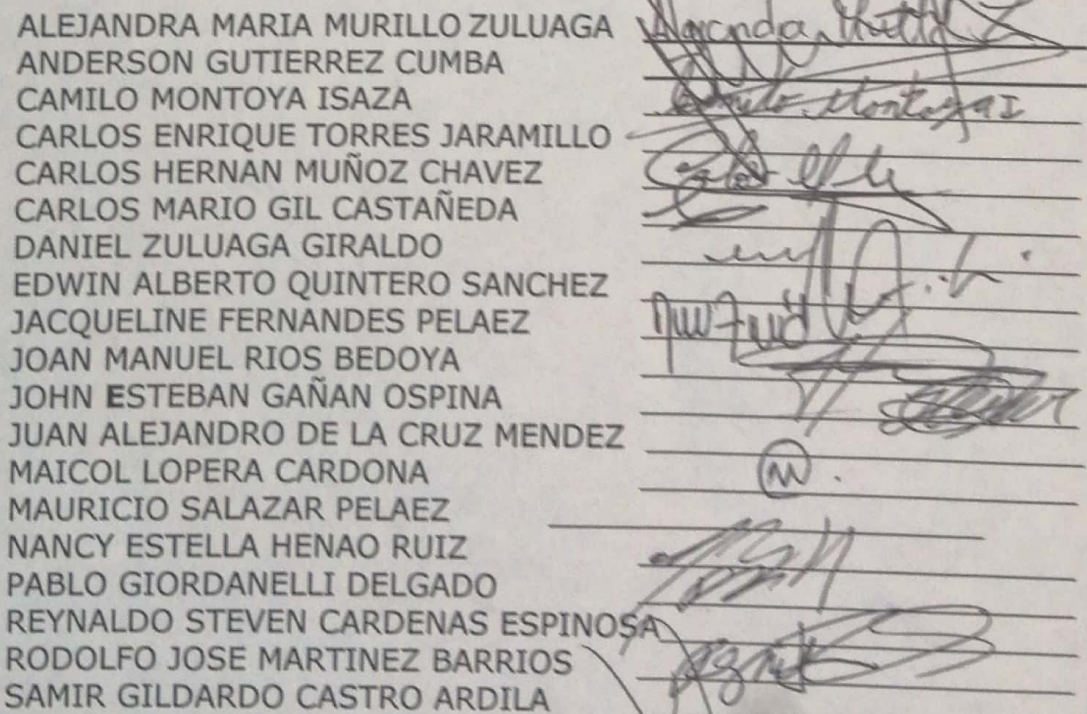 ALEJANDRA MARIA MURILLO ZULUAGA
ANDERSON GUTIERREZ CUMBA
CAMILO MONTOYA ISAZA Camilo Montoya I
CARLOS ENRIQUE TORRES JARAMILLO
CARLOS HERNAN MUÑOZ CHAVEZ
CARLOS MARIO GIL CASTAÑEDA
DANIEL ZULUAGA GIRALDO
EDWIN ALBERTO QUINTERO SANCHEZ
JACQUELINE FERNANDES PELAEZ
JOAN MANUEL RIOS BEDOYA
JOHN ESTEBAN GAÑAN OSPINA
JUAN ALEJANDRO DE LA CRUZ MENDEZ
MAICOL LOPERA CARDONA
MAURICIO SALAZAR PELAEZ
NANCY ESTELLA HENAO RUIZ
PABLO GIORDANELLI DELGADO
REYNALDO STEVEN CARDENAS ESPINOSA
RODOLFO JOSE MARTINEZ BARRIOS
SAMIR GILDARDO CASTRO ARDILA